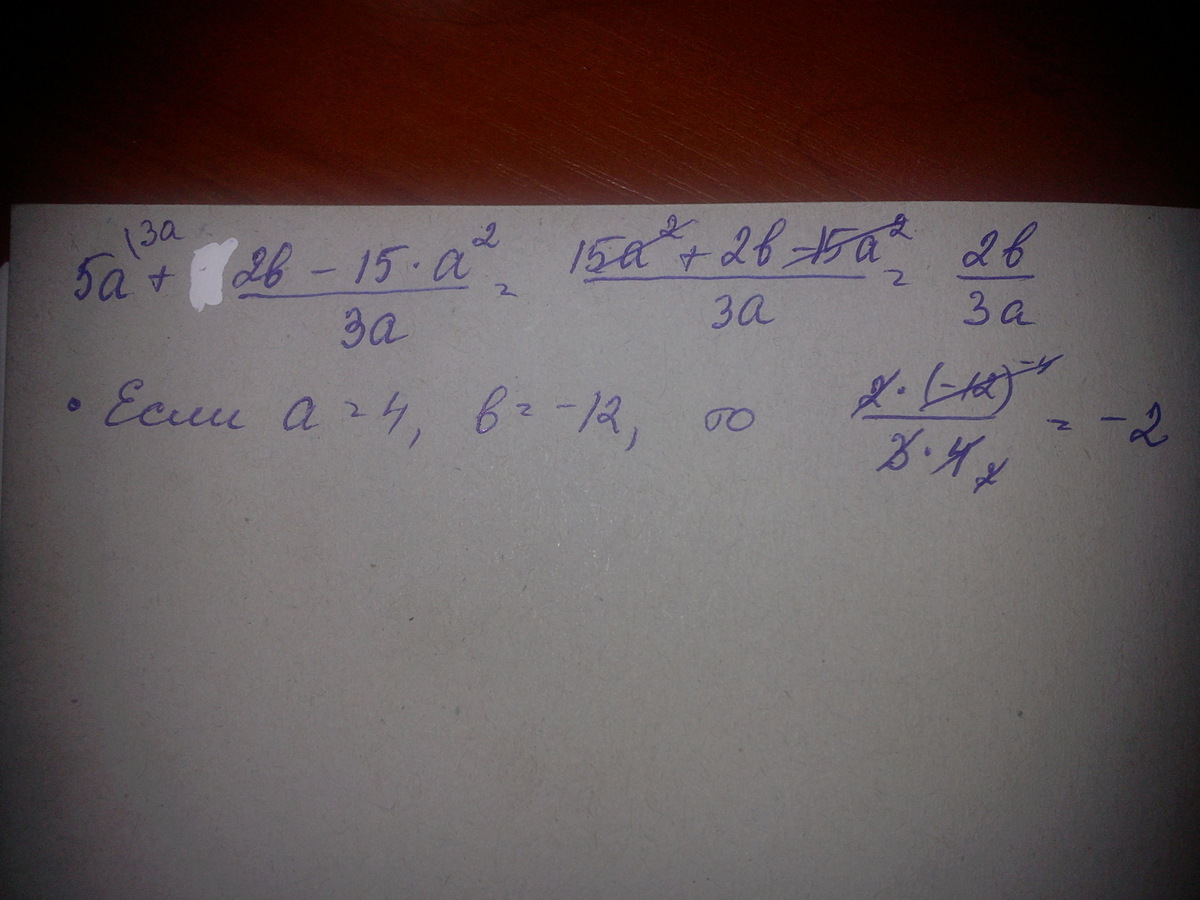 5a^(3a + (2b - 15·a²)/(3a) = (15a² + 2b - 15a²)/(3a) = 2b/(3a)
• Если a = 4, b = -12, то (2·(-12)⁻⁴)/(3·4₂) = -2